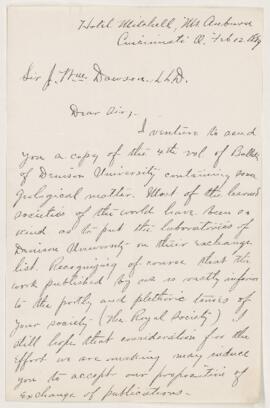 Hotel Mitchell, Mt Auburn
Cincinnati O. Feb 12
Sir J. Wm. Dawson, LLD.
Dear Sir,
I venture to send
you a copy of the 4th vol of Bulletin
of Denison University containing some
geological matter. Most of the learned
societies of the world have been so
kind as to put the laboratories of
Denison University on their exchange
list. Recognizing of course that the
work published by us is vastly inferior
to the portly and plethoric tomes of
your society (the Royal Society) I
still hope that consideration for the
effort we are making may induce
you to accept our proposition of
exchange of publications.